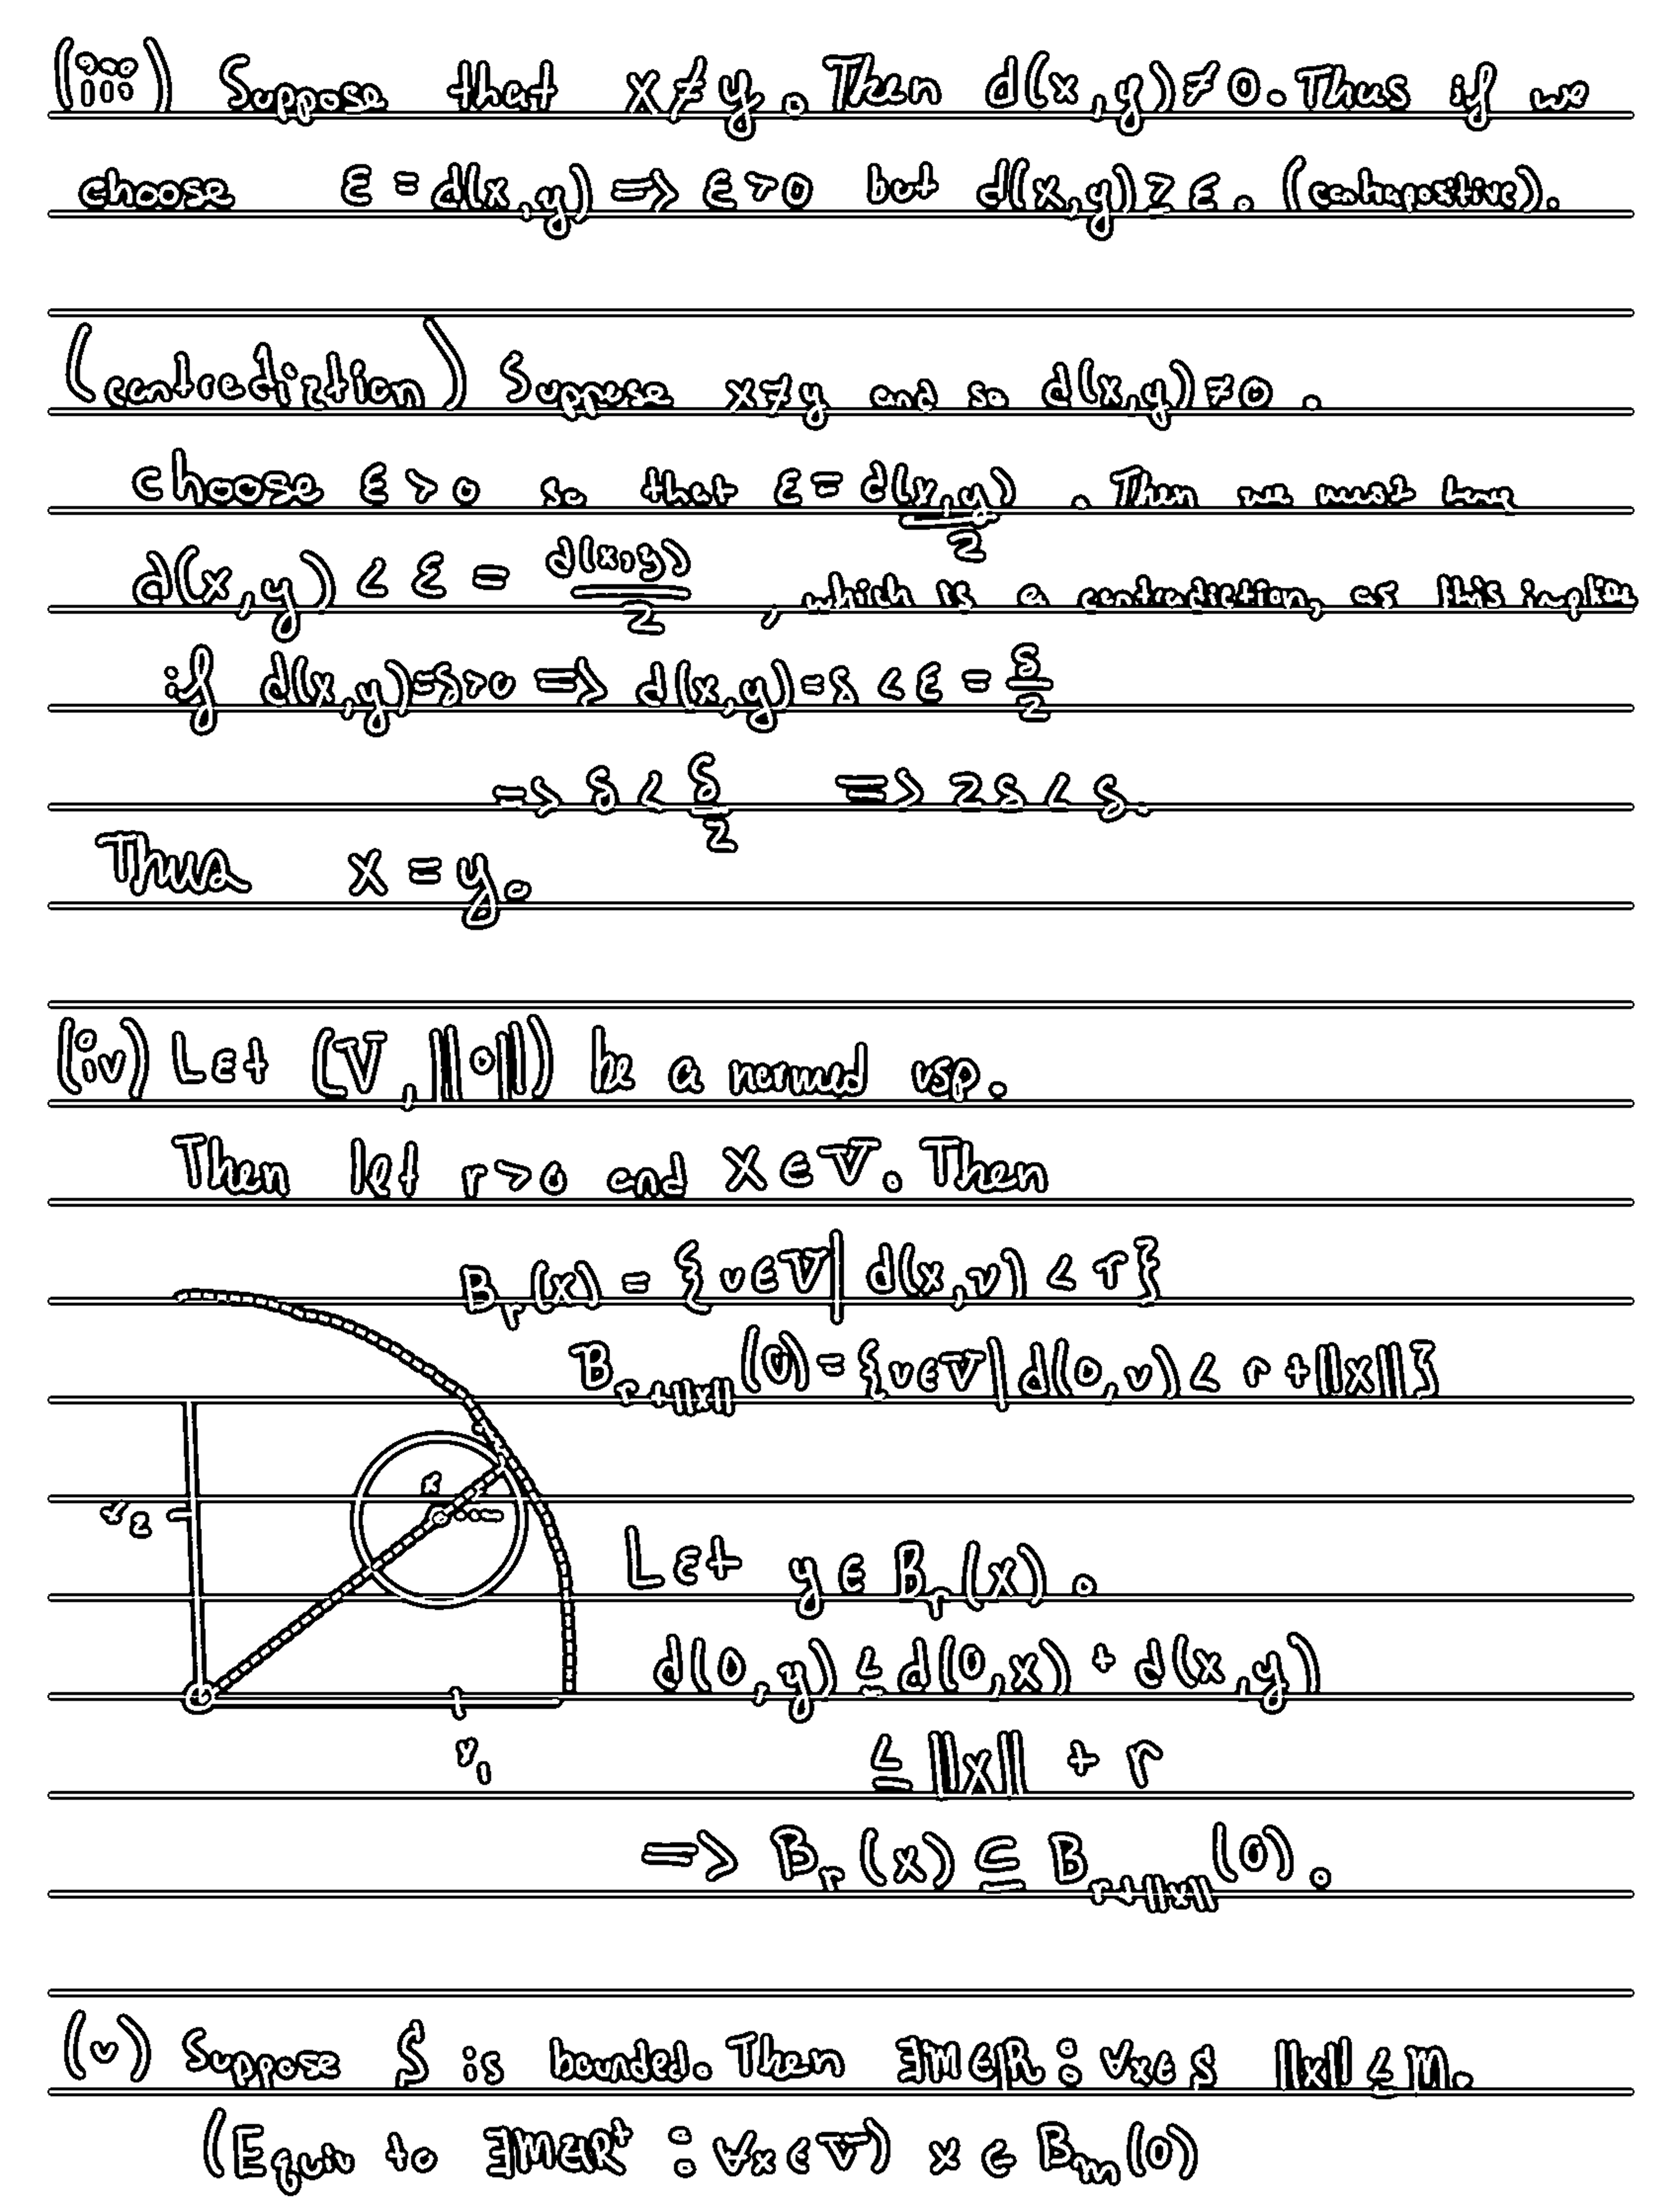 (iii) Suppose that x ≠ y. Then d(x,y) ≠ 0. Thus if we
choose ε = d(x,y) => ε > 0 but d(x,y) ≥ ε. (contrapositive).
(contradiction) Suppose x ≠ y and so d(x,y) ≠ 0.
choose ε > 0 so that ε = d(x,y)/2. Then we must have
d(x,y) < ε = d(x,y)/2, which is a contradiction, as this implies
if d(x,y) = δ > 0 => d(x,y) = δ < ε = δ/2
=> δ < δ/2 => 2δ < δ.
Thus x = y.
(iv) Let (V, ||∘||) be a normed vsp.
Then let r > 0 and x ∈ V. Then
B_r(x) = {v ∈ V | d(x,v) < r}
B_{r+||x||}(0) = {v ∈ V | d(0,v) < r + ||x||}
x
x₂
Let y ∈ B_r(x).
d(0,y) ≤ d(0,x) + d(x,y)
x₁
≤ ||x|| + r
=> B_r(x) ⊆ B_{r+||x||}(0).
(v) Suppose S is bounded. Then ∃M∈ℝ : ∀x∈S ||x|| ≤ M.
(Equiv to ∃M∈ℝ⁺ : ∀x∈V) x ∈ B_m(0)